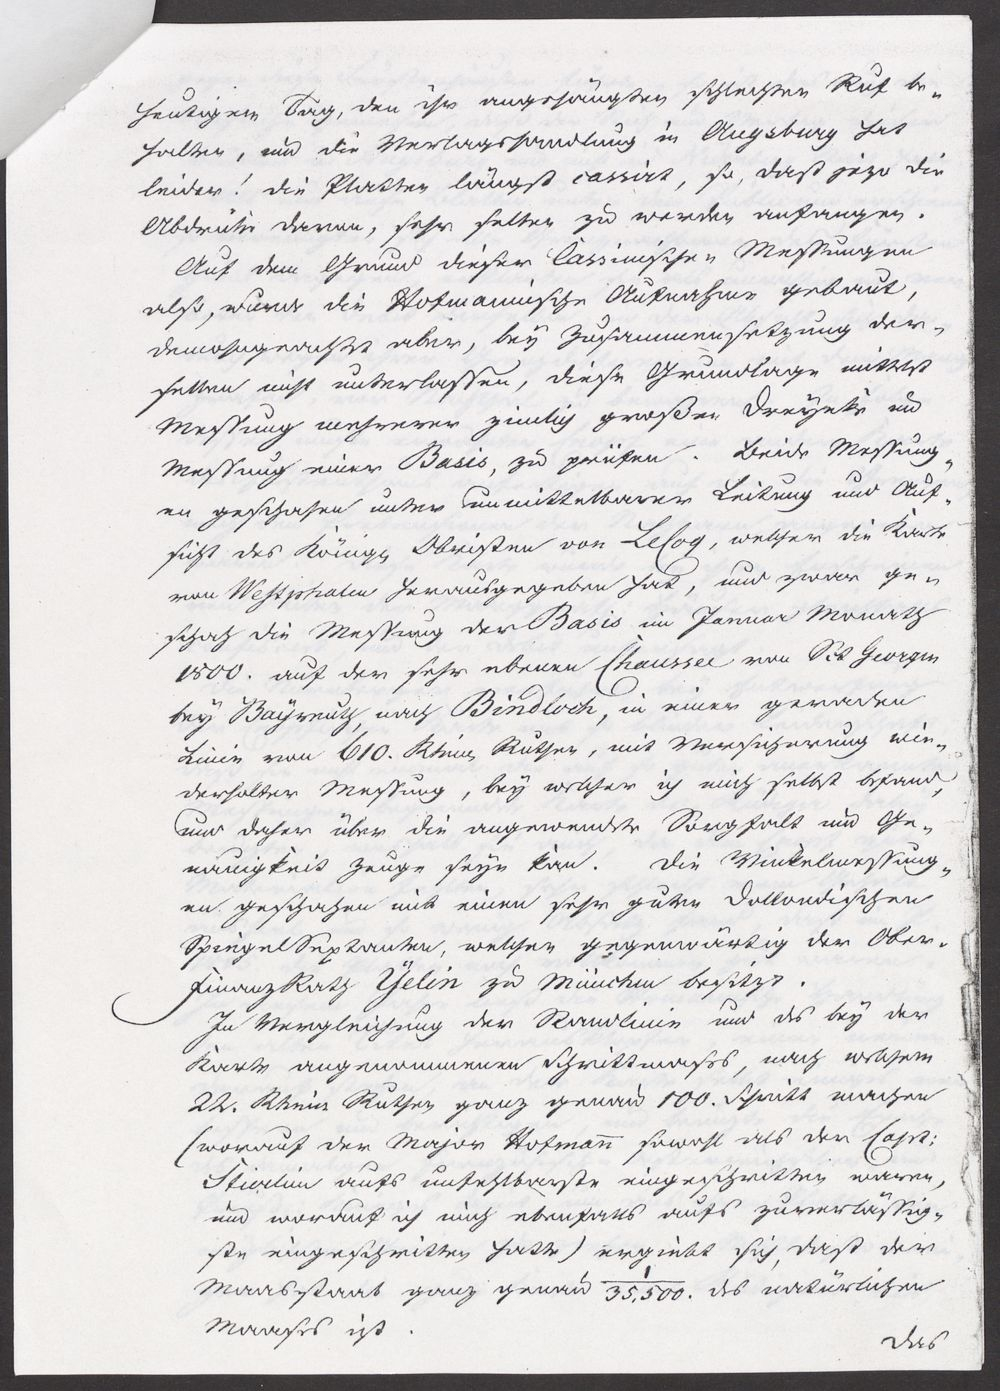 heutigen Tag, den ihr angehängten schlechten Ruf be„
halten, und die Verlagshandlung in Augsburg hat
leider! die Platten längst cassirt, so, daß jezo die
Abdrüke davon, sehr selten zu werden anfangen.
Auf dem Grund dieser Cassinischen Messungen
also, wurde die Hofmannische Aufnahme gebaut,
demohngeachtet aber, bey Zusammensetzung der„
selben nicht unterlassen, diese Grundlage mittelst
Messung mehrerer zimlich großer Dreyeke und
Messung einer Basis, zu prüfen. Beide Messung„
en geschahen unter unmittelbarer Leitung und Auf„
sicht des Königl Obristen von LeCoq, welcher die Karte
von Westphalen herausgegeben hat, und zwar ge„
schah die Messung der Basis im Januar Monath
1800. auf der sehr ebenen Chaussee von Sct Georgen
bey Bayreuth, nach Bindloch, in einer geraden
Linie von 610. Rhein Ruthen, mit Versicherung wie„
derholter Messung, bey welcher ich mich selbst befand,
und daher über die angewendete Sorgfalt und Ge„
nauigkeit Zeuge seyn kan. Die Winkelmessung„
en geschahen mit einen sehr guten Dollondischen
SpiegelSextanten, welchen gegenwärtig der Ober„
FinanzRath Yelin zu München besitzt.
In Vergleichung der Standlinie und des bey der
Karte angenommenen Schrittmaases, nach welchem
22. Rhein Ruthen ganz genau 100. Schritt machen
(worauf der Major Hofmañ sowohl als der Capt:
Stierlin aufs unfehlbarste eingeschritten waren,
und worauf ich mich ebenfalls aufs zuverlässig„
ste eingeschritten hatte) ergiebt sich, daß der
Maasstaab ganz genau 1/35,500. des natürlichen
Maases ist.
Das